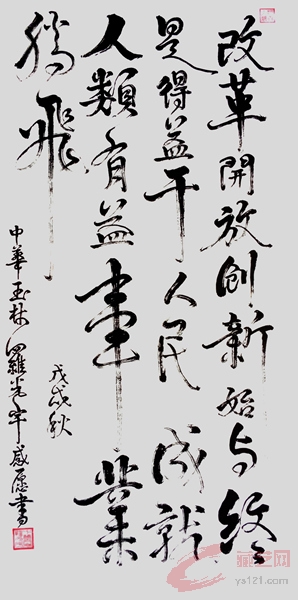 改革開放創新始与终
是得益于人民成就
人類有益事業
腾飛
戊戌秋
中華玉林羅光宇感愿書
藏艺网
ys121.com